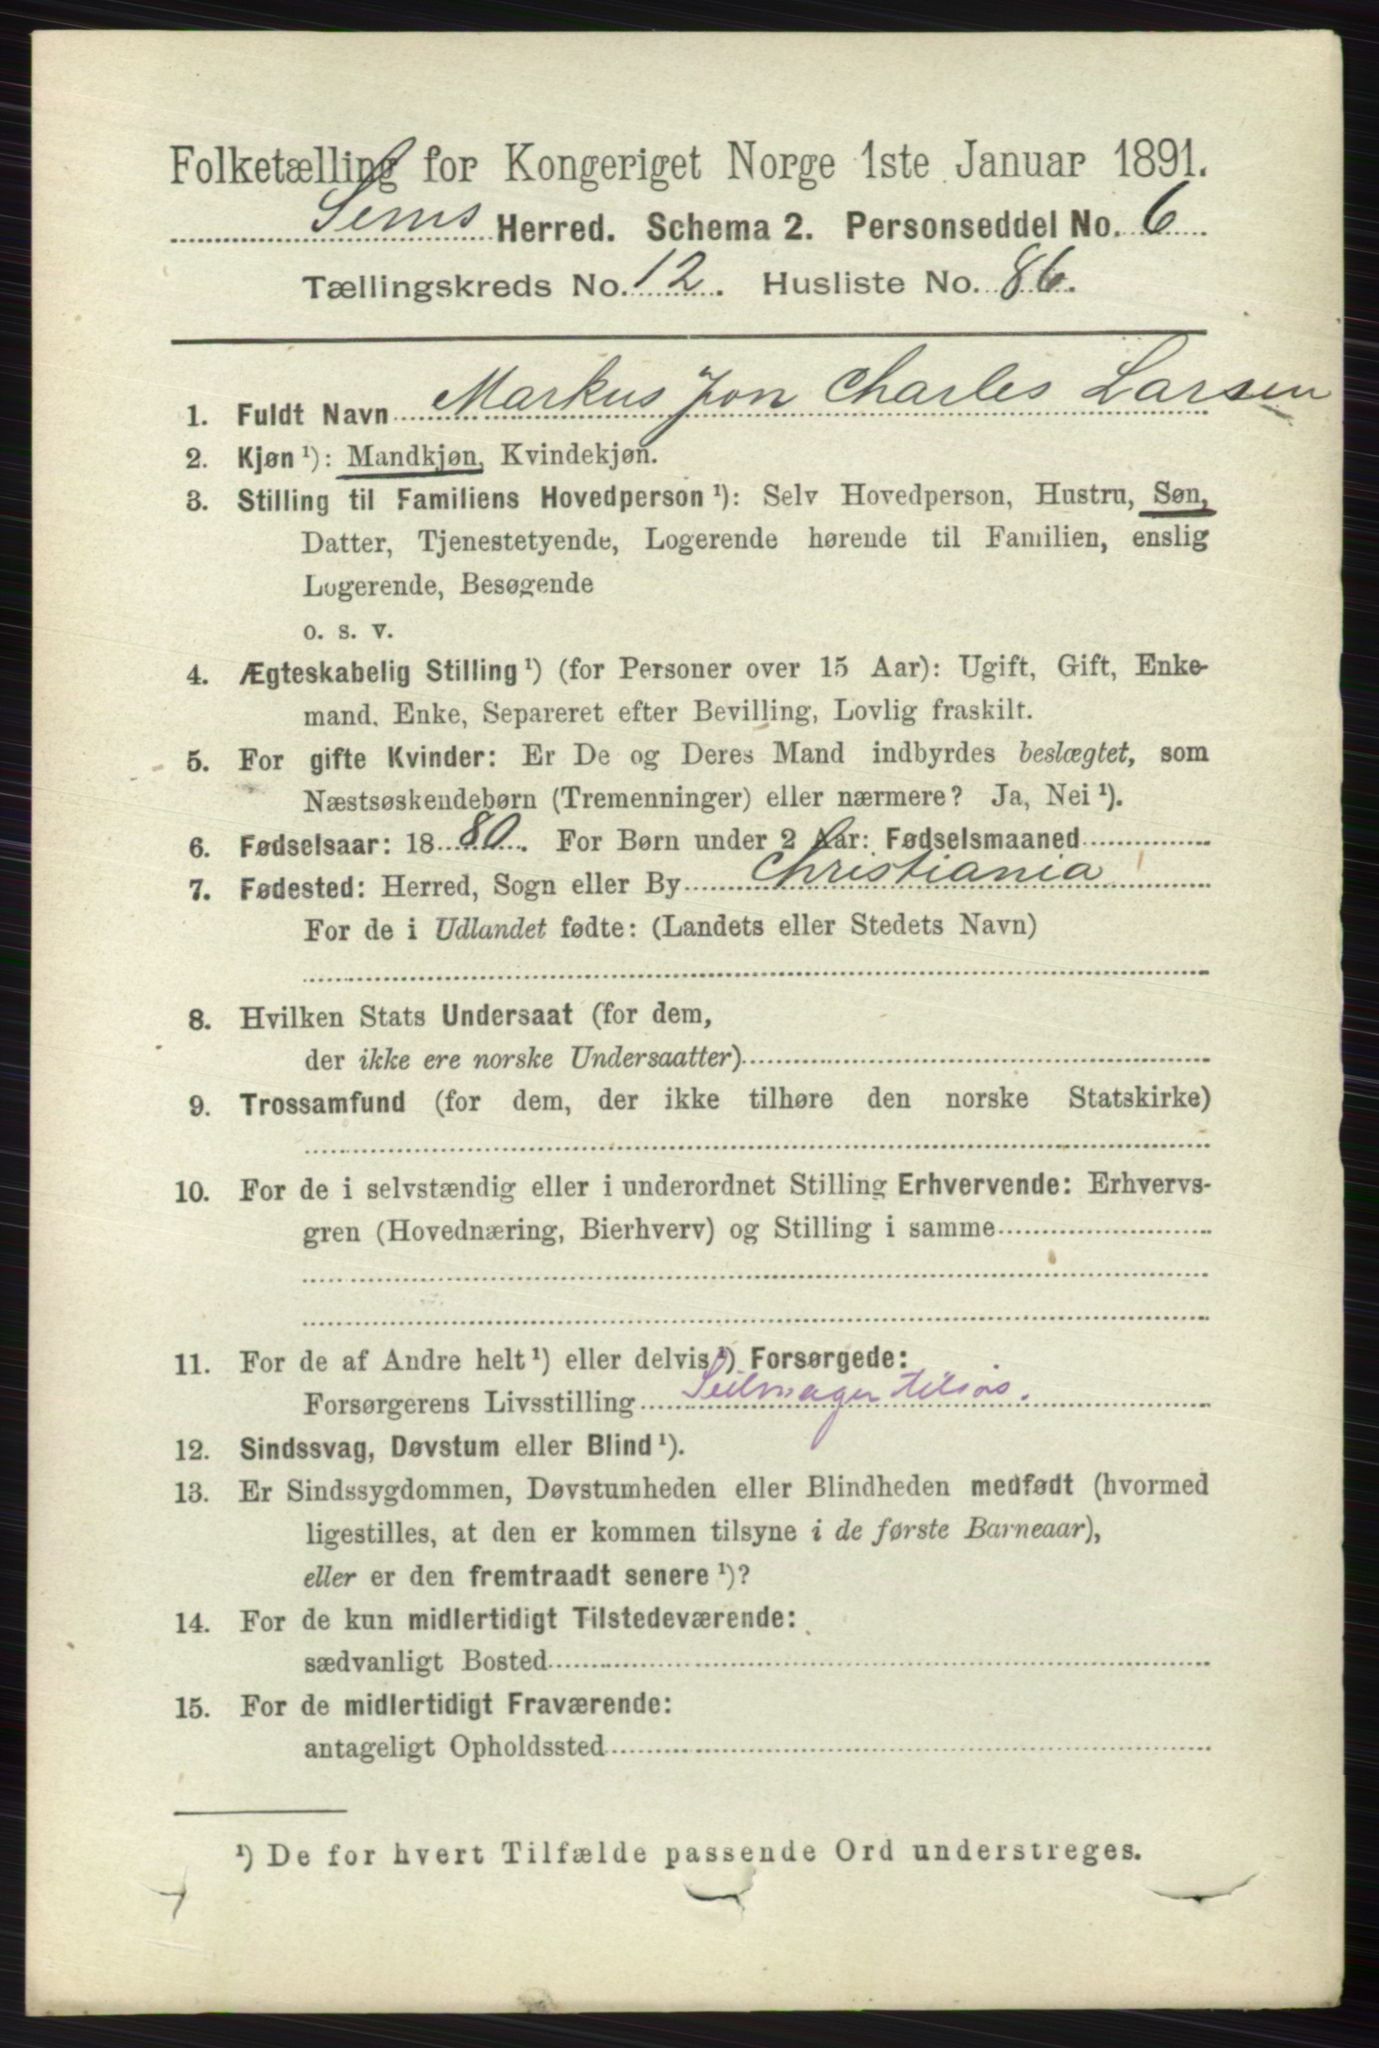 Folketælling for Kongeriget Norge 1ste Januar 1891.
Sems Herred. Schema 2. Personseddel No. 6
Tællingskreds No. 12. Husliste No. 86.
1. Fuldt Navn Markus Jon Charles Larsen
2. Kjøn ¹): Mandkjøn, Kvindekjøn.
3. Stilling til Familiens Hovedperson ¹): Selv Hovedperson, Hustru, Søn,
Datter, Tjenestetyende, Logerende hørende til Familien, enslig
Logerende, Besøgende
o. s. v.
4. Ægteskabelig Stilling ¹) (for Personer over 15 Aar): Ugift, Gift, Enke-
mand, Enke, Separeret efter Bevilling, Lovlig fraskilt.
5. For gifte Kvinder: Er De og Deres Mand indbyrdes beslægtet, som
Næstsøskendebørn (Tremenninger) eller nærmere? Ja, Nei ¹).
6. Fødselsaar: 1880. For Børn under 2 Aar: Fødselsmaaned
7. Fødested: Herred, Sogn eller By Christiania
For de i Udlandet fødte: (Landets eller Stedets Navn)
8. Hvilken Stats Undersaat (for dem,
der ikke ere norske Undersaatter)
9. Trossamfund (for dem, der ikke tilhøre den norske Statskirke)
10. For de i selvstændig eller i underordnet Stilling Erhvervende: Erhvervs-
gren (Hovednæring, Bierhverv) og Stilling i samme
11. For de af Andre helt ¹) eller delvis ¹) Forsørgede:
Forsørgerens Livsstilling Seilmager tilsøs.
12. Sindssvag, Døvstum eller Blind ¹).
13. Er Sindssygdommen, Døvstumheden eller Blindheden medfødt (hvormed
ligestilles, at den er kommen tilsyne i de første Barneaar),
eller er den fremtraadt senere ¹)?
14. For de kun midlertidigt Tilstedeværende:
sædvanligt Bosted
15. For de midlertidigt Fraværende:
antageligt Opholdssted
¹) De for hvert Tilfælde passende Ord understreges.